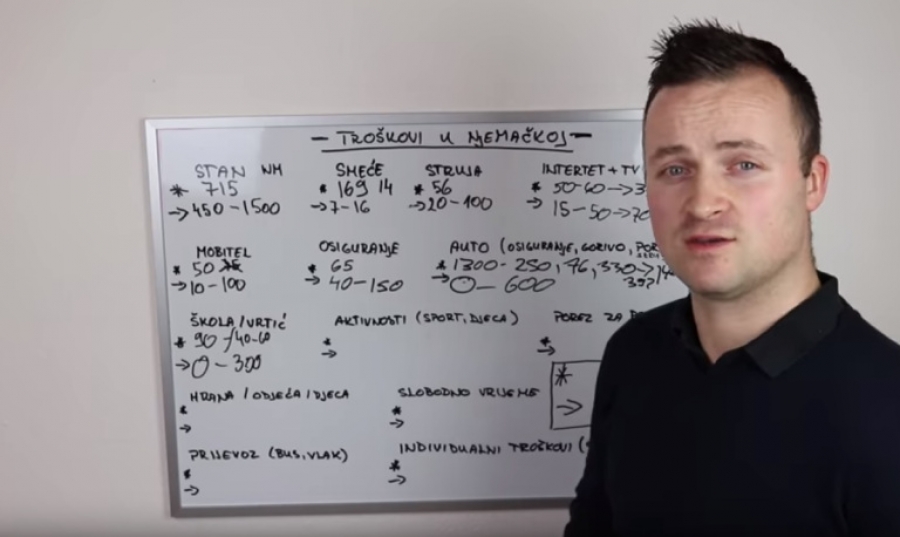 — TROŠKOVI U NJEMAČKOJ —
STAN NM
* 715
→ 450 - 1500
SMEĆE
* 169 14
→ 7 - 16
STRUJA
* 56
→ 20 - 100
INTERTET + TV
* 50-60 → 3
→ 15 - 50 → 70
MOBITEL
* 50
→ 10 - 100
OSIGURANJE
* 65
→ 40 - 150
AUTO (OSIGURANJE, GORIVO, POR
* 1300 - 250, 76, 330 → 14
→ 0 - 600
ŠKOLA / VRTIĆ
* 90 / 40-60
→ 0 - 300
AKTIVNOSTI (SPORT, DJECA)
*
→
POREZ ZA
*
→
HRANA / ODJEĆA / DJECA
*
→
SLOBODNO VRIJEME
*
→
*
→
PRIJEVOZ (BUS, VLAK)
*
→
INDIVIDUALNI TROŠKOVI (
*
→